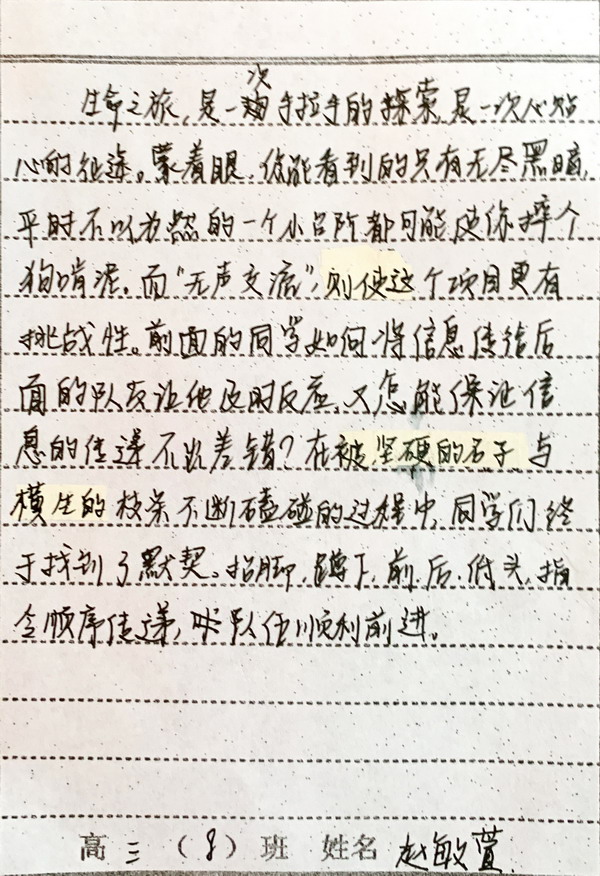 生命之旅,是一次手拉手的探索,是一次心贴
心的征途。蒙着眼,你能看到的只有无尽黑暗,
平时不以为然的一个小台阶都可能使你摔个
狗啃泥。而“无声交流”,则使这个项目更有
挑战性。前面的同学如何将信息传给后
面的队友让他及时反应,又怎能保证信
息的传递不出差错?在被坚硬的石子与
横生的枝条不断磕碰的过程中,同学们终
于找到了默契。抬脚,蹲下,前,后,低头,指
令顺序传递,队伍顺利前进。
高三(8)班 姓名 赵敏萱